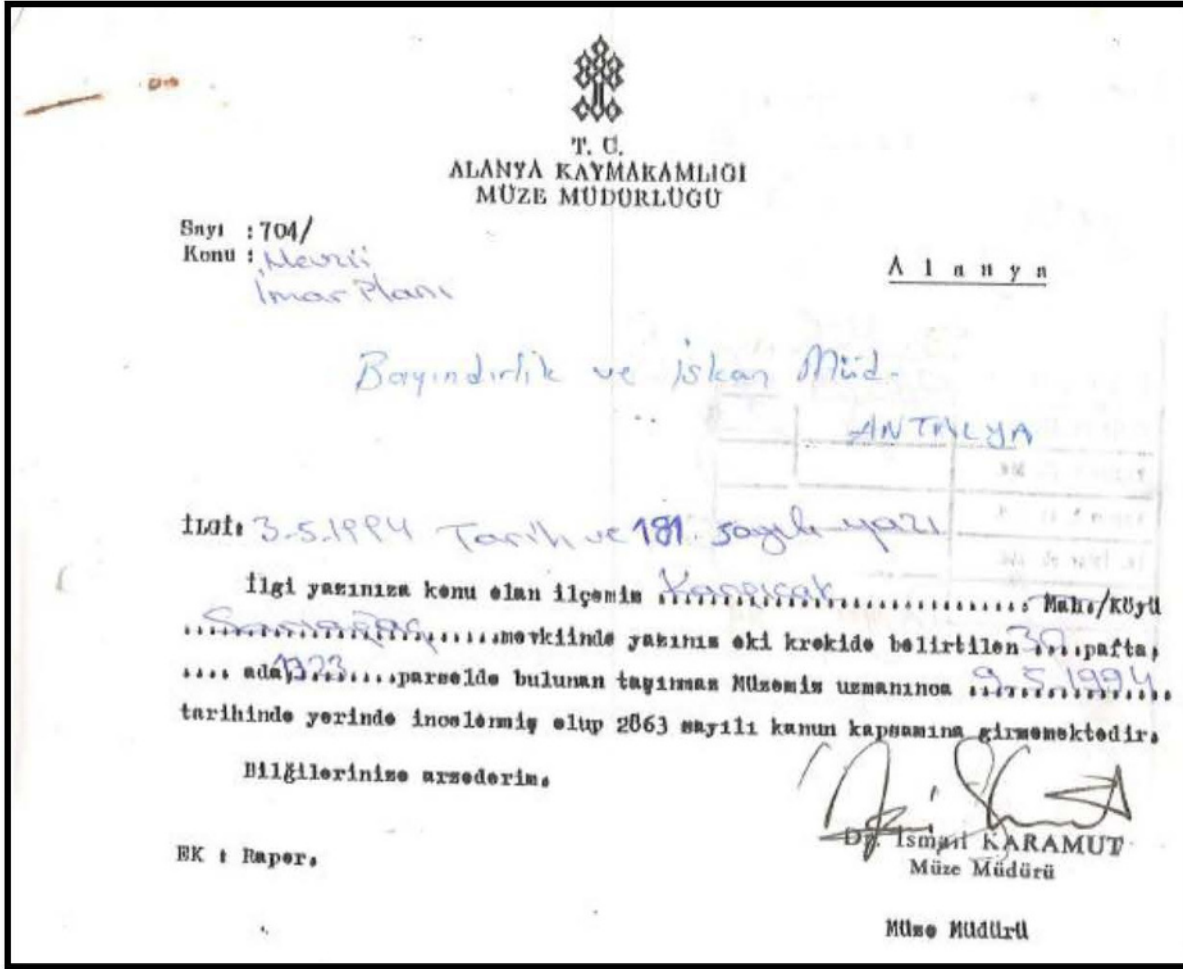 T. C.
ALANYA KAYMAKAMLIĞI
MÜZE MÜDÜRLÜĞÜ
Sayı : 704/
Konu : Mevzii
İmar Planı
A l a n y a
Bayındırlik ve İskan Müd.
ANTALYA
İLGİ: 3.5.1994 Tarih ve 181. sayılı yazı
İlgi yazınıza konu olan ilçemiz Kargıcak Mah./Köyü
mevkiinde yazınız eki krokide belirtilen 30 pafta,
.... ada, 1323 parselde bulunan taşınmaz Müzemiz uzmanınca 9.5.1994
tarihinde yerinde incelenmiş olup 2863 sayılı kanun kapsamına girmemektedir.
Bilğilerinize arzederim.
Dr. İsmail KARAMUT
Müze Müdürü
EK : Rapor.
Müze Müdürü